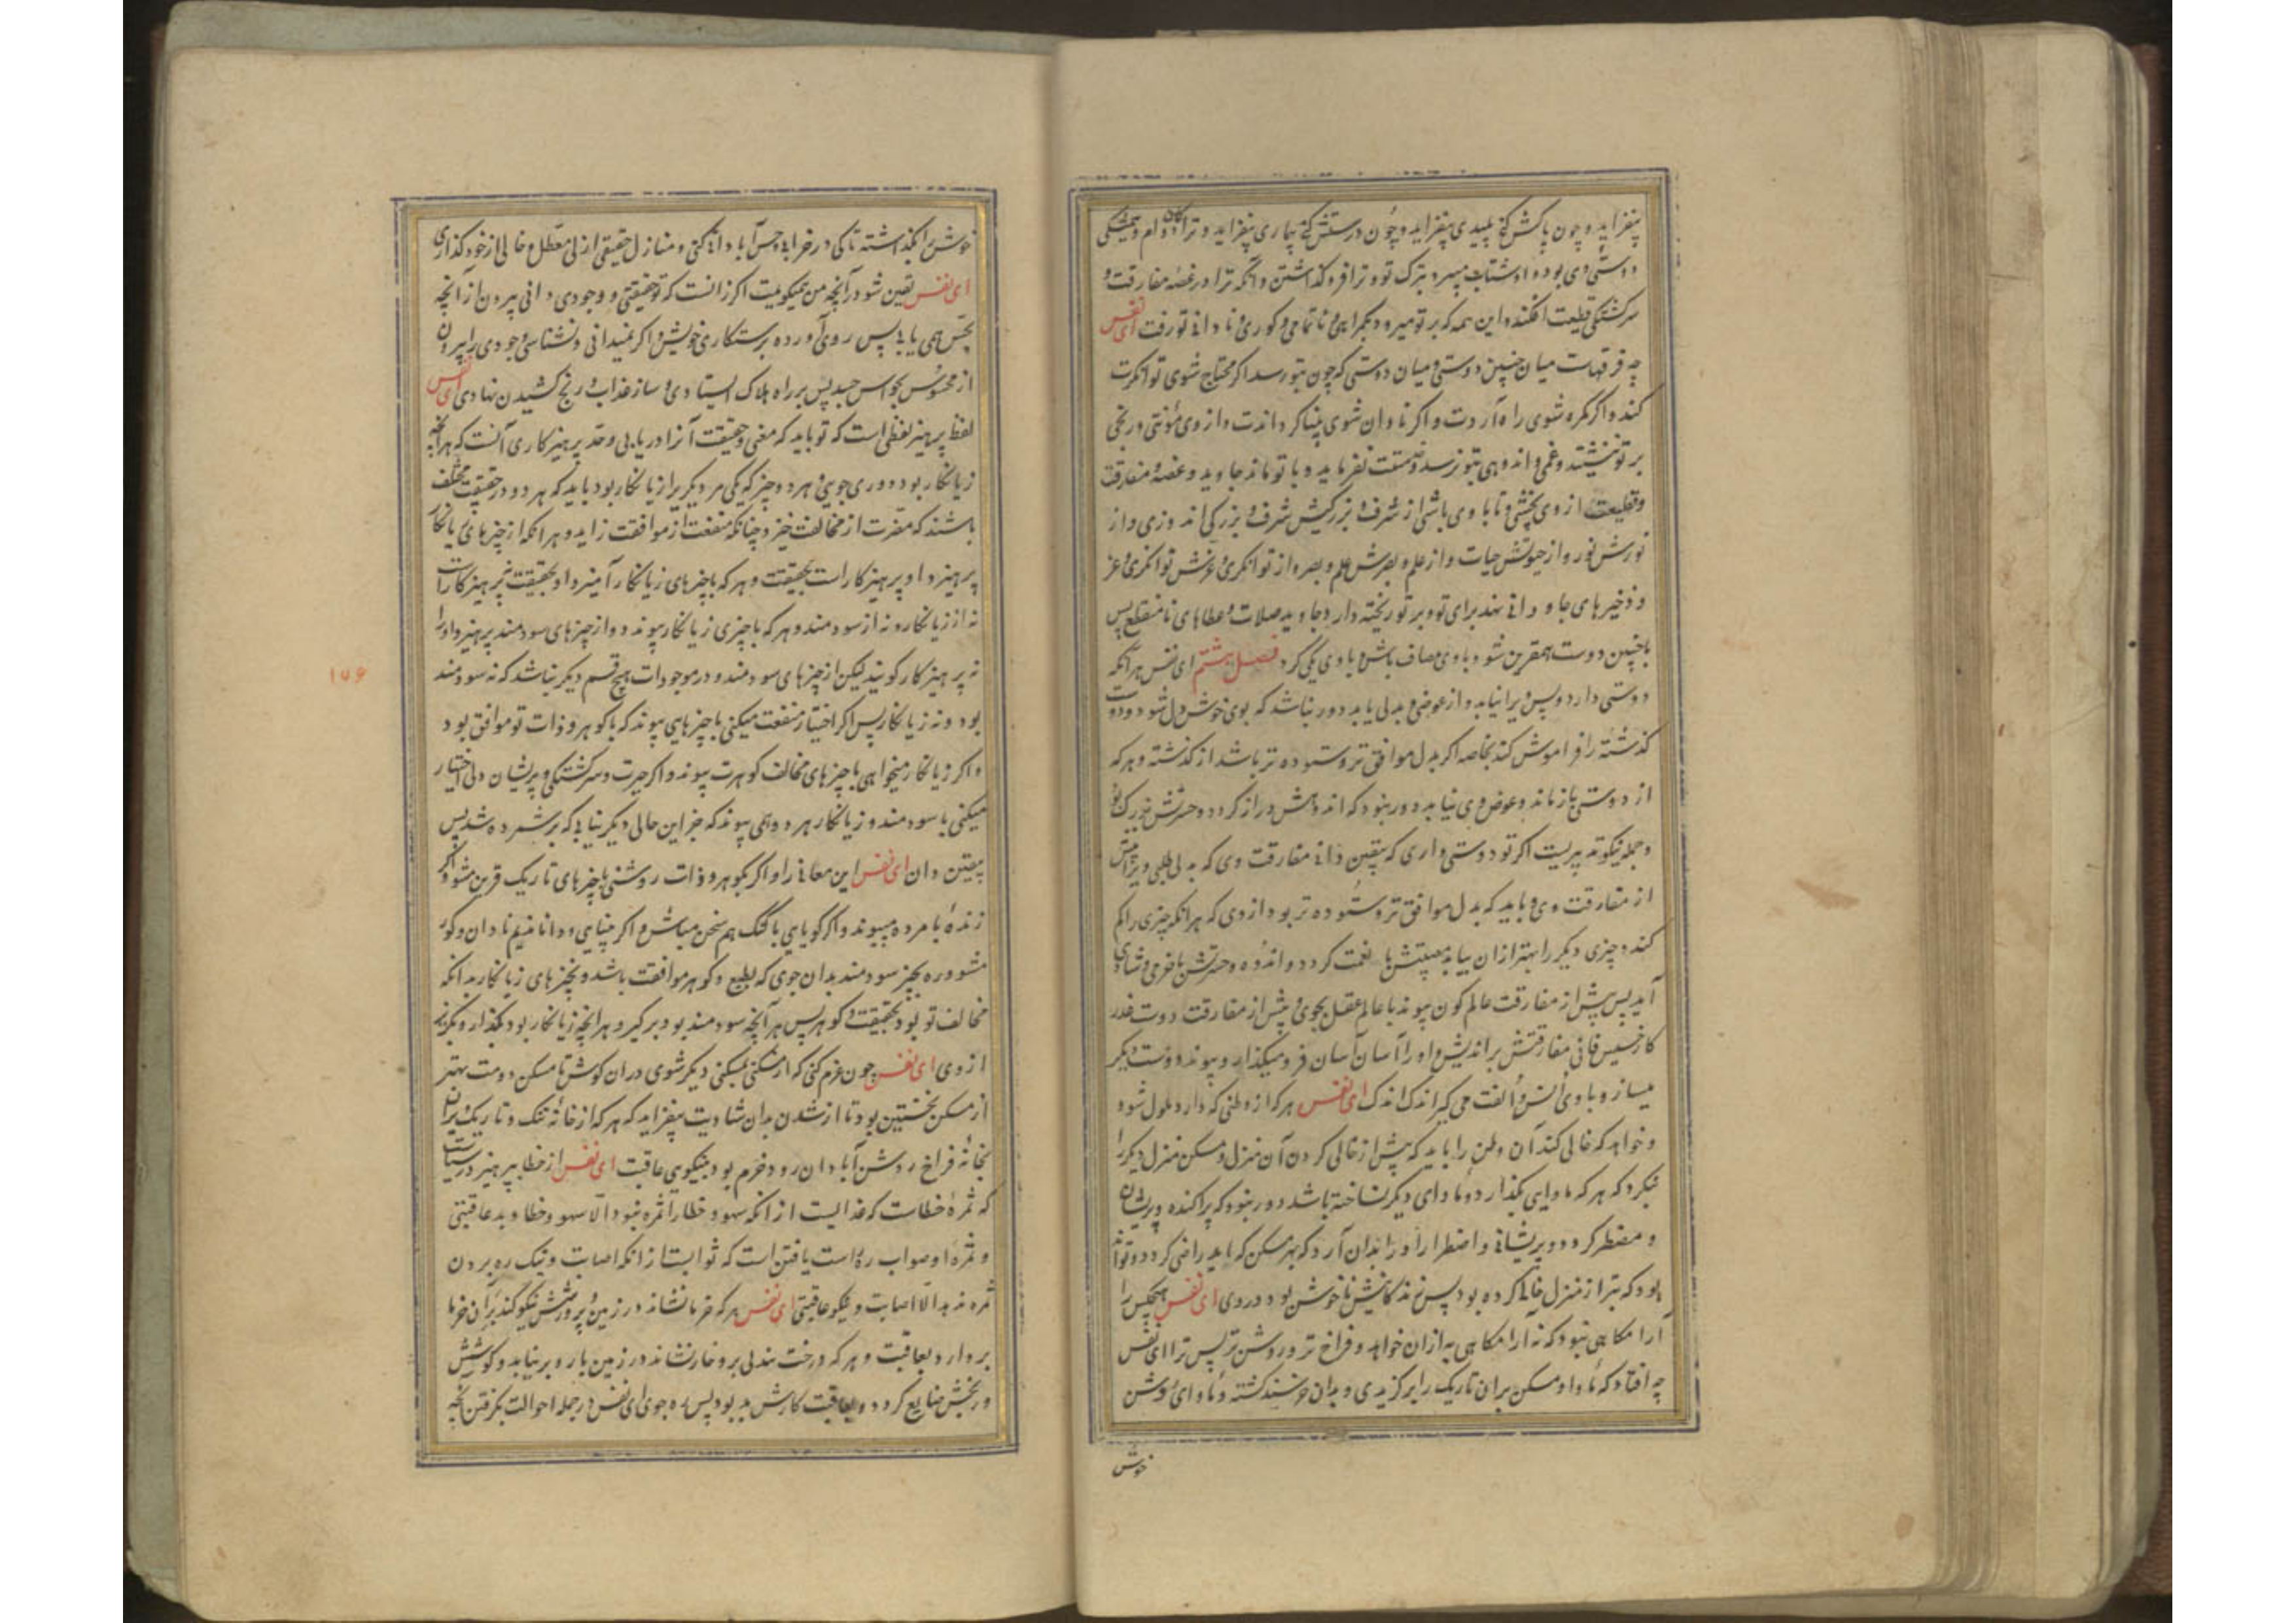 بیفزاید و چون پاکش کنی پلیدی بیفزاید و چون درستش کنی بیماری بیفزاید و ترا دوام و همیشگی
دوستی وی بود و او شتاب میبرد بترک تو و ترا فرو گذاشتن و آنگه ترا در غصهٔ مفارقت و
سرگشتگی قطیعت افکند و این همه که بر تو میرود بگمراهی و ناتمامی و کوری و نادانی تو رفت ای نفس
چه فرقهاست میان چنین دوستی و میان دوستی که چون بتو رسد اگر محتاج شوی توانگرت
کند و اگر گمره شوی راه آردت و اگر نادان شوی بینا گرداندت و از وی مؤنتی و رنجی
بر تو ننشیند و غمی و اندوهی بتو نرسد و قسمتت نفرماید و با تو ماند جاوید و غصهٔ مفارقت
و قطیعت از وی نچشی و تا با وی باشی از شرف و بزرگیش شرف و بزرگی اندوزی و از
نورش نور و از حیوتش حیات و از علم و بصرش علم و بصر و از توانگری و عزش توانگری و عز
و ذخیرهای جاودانی نهد برای تو و بر تو ریخته دارد جاوید صلات و عطاهای نامنقطع پس
با چنین دوست همقرین شو و با وی صاف باش و با وی یکی گرد فصل هشتم ای نفس هر آنکه
دوستی دارد و پس ویرا نیابد و از عوض و بدلی یابد دور نباشد که بوی خوش دل شود و دوست
گذشته را فراموش کند بخاصه اگر بدل موافق تر و ستوده تر باشد از گذشته و هر که
از دوستی باز ماند و عوض وی نیابد دور نبود که اندوهش دراز گردد و حسرتش بزرگ بود
و جمله نیکو تدبیریست اگر تو دوستی داری که بیقین دانی مفارقت وی که بدلی طلبی ویرا پیش
از مفارقت وی و باید که بدل موافق تر و ستوده تر بود از وی که هر آنکو چیزی را گم
کند و چیزی دیگر را بهتر از ان بیابد مصیبتش با نعمت گردد و اندوه و حسرتش با خرمی و شادی
آید پس پیش از مفارقت عالم کون پیوند با عالم عقل بجوی و پیش از مفارقت دوست غدر
کار خسیس فانی مفارقتش بر اندیش و او را آسان آسان فرو میگذار و پیوند دوست دیگر
میساز و با وی انس و الفت می گیر اندک اندک ای نفس هر که از وطنی که دارد ملول شود
و خواهد که خالی کند آن وطن را باید که پیش از خالی کردن آن منزل و مسکن منزل دیگر را
بنگرد که هر که ماوایی بگذارد و ماوای دیگر نساخته باشد دور نبود که پراکنده و پریشان
و مضطر گردد و پریشانی و اضطرار او را بدان آرد که بهر مسکن که باید راضی گردد و تواند
بود که بتر از منزل خالی کرده بود پس زندگانیش ناخوش بود در وی ای نفس هیچکس را
آرامگاهی نبود که نه آرامگاهی به از ان خواهد و فراخ تر و روشن تر پس ترا ای نفس
چه افتاد که ماوا و مسکن بران تاریک را برگزیدی و بدان خرسند گشته و ماوای روشن
خوش
خوش را بگذاشته تا کی در خرابه حس آبادانی کنی و منازل حقیقی ازلی معطل و خالی از خود گذاری
ای نفس یقین شو در آنچه من میگویمت اگر زانست که تو حقیقتی و وجودی دانی بیرون از آنچه
بحس همی یابی پس روی آورده برستکاری خویش و اگر نمیدانی و نشناسی وجودی را بیرون
از محسوس بحواس جسد پس بر راه هلاک ایستادی و ساز عذاب و رنج کشیدن نهادی ای نفس
لفظ پرهیز لفظی است که تو باید که معنی و حقیقت آنرا دریابی و حد پرهیزکاری آنست که هر آنچه
زیانکار بود دوری جوئی و هر دو چیز که یکی مر دیگر را زیانکار بود باید که هر دو در حقیقت مختلف
باشند که مضرت از مخالفت خیزد چنانکه منفعت از موافقت زاید و هر آنکه از چیزهای زیانکار
پرهیزد او پرهیزکار است بحقیقت و هر که با چیزهای زیانکار آمیزد او بحقیقت نه پرهیزکار است
نه از زیانکار و نه از سودمند و هر که با چیزی زیانکار پیوندد و از چیزهای سودمند پرهیزد او را
نه پرهیزکار گویند لیکن از چیزهای سودمند و در موجودات هیچ قسم دیگر نباشد که نه سودمند
بود و نه زیانکار پس اگر اختیار منفعت میکنی با چیزهایی پیوند که با گوهر و ذات تو موافق بود
و اگر زیانکار میخواهی با چیزهای مخالف گوهرت پیوند و اگر حیرت و سرگشتگی و پریشان دلی اختیار
میکنی با سودمند و زیانکار هر دو همی پیوند که جز این حالی دیگر نیابی که بر شمرده شد پس
بیقین دان ای نفس این معانی را و اگر گوهر و ذات روشنی با چیزهای تاریک قرین مشو و اگر
زندهٔ با مرده مپیوند و اگر گویایی با گنگ هم سخن مباش و اگر بینایی و دانا ندیم نادان و کور
مشو و ره بچیز سودمند بدان جوی که بطبع و گوهر موافقت باشد و بچیزهای زیانکار بدانکه
مخالف تو بود بحقیقت و گوهر پس هر آنچه سودمند بود برگیر و هر آنچه زیانکار بود بگذار و بگریز
از وی ای نفس چون عزم کنی که از مسکنی بمسکنی دیگر شوی در ان کوش تا مسکن دومت بهتر
از مسکن نخستین بود تا از شدن بدان شادیت بیفزاید که هر که از خانهٔ تنگ و تاریک ویران
بخانهٔ فراخ روشن آبادان رود خرم بود بنیکویی عاقبت ای نفس از خطا پرهیز درست
که ثمرهٔ خطاست که عذابست از انکه سهو و خطا را ثمره نبود الا سهو و خطا و بد عاقبتی
و ثمره او صواب ره راست یافتن است که ثوابست از انکه اصابت و نیک ره بردن
ثمره ندهد الا اصابت و نیکو عاقبتی ای نفس هر که خرما نشاند در زمین و پرورشش نیکو کند بر آن خرما
بردارد بعاقبت و هر که درخت بیدلی بر و خار نشاند در زمین بار و بر نیابد و کوشش
و رنجش ضایع گردد و بعاقبت کارش بد بود پس ره جوی ای نفس در جمله احوالت بگرفتن آنچه